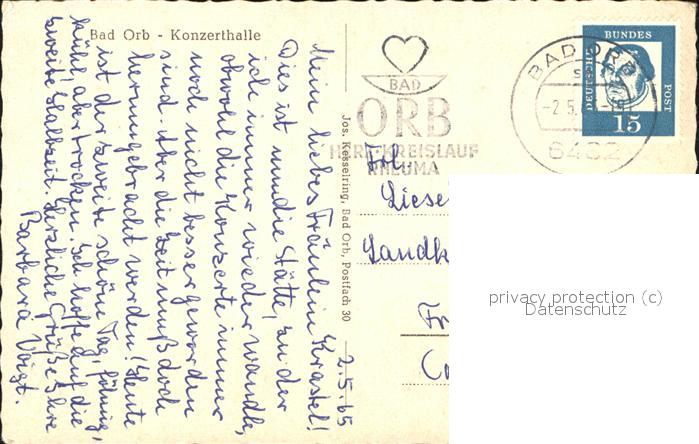 Bad Orb - Konzerthalle
2.5.65
Mein liebes Fräulein Krastel!
Dies ist nun die Stätte, an der
ich immer wieder wandle,
obwohl die Konzerte immer
noch nicht besser geworden
sind. Aber die Zeit muß doch
herumgebracht werden! Heute
ist der zweite schöne Tag,
kühl, aber trocken. Ich hoffe auf die
zweite Halbzeit. Herzliche Grüße Ihre
Barbara Voigt.
Jos. Kesselring, Bad Orb, Postfach 30
BAD
ORB
HERZ-KREISLAUF
RHEUMA
BAD ORB
-2.5.
6482
DEUTSCHE
BUNDES
POST
15
Frl.
Liese
Landk
privacy protection (c)
Datenschutz